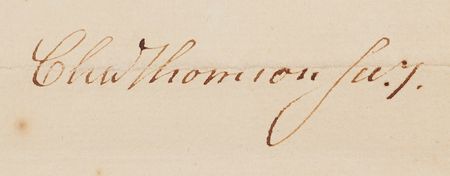 Cha͏s Thomson Secy.